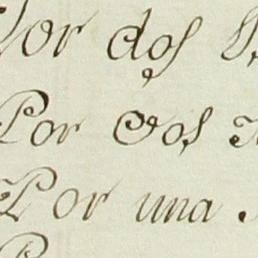 Por dos
Por dos
Por una